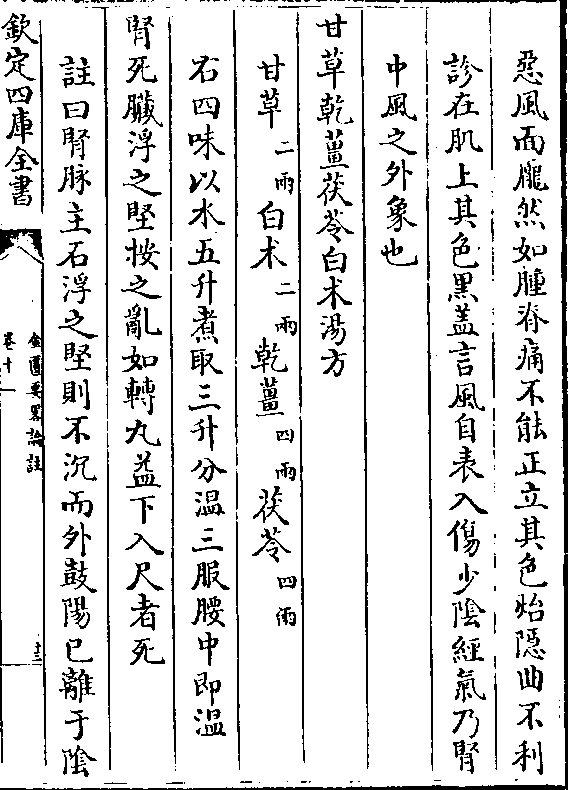 惡風而龐然如腫脊痛不能正立其色炲隱曲不利
診在肌上其色黑蓋言風自表入傷少陰經氣乃腎
中風之外象也
甘草乾薑茯苓白术湯方
甘草二兩白术二兩乾薑四兩茯苓四兩
右四味以水五升煮取三升分溫三服腰中即溫
腎死臟浮之堅按之亂如轉丸益下入尺者死
註曰腎脉主石浮之堅則不沉而外鼓陽已離于陰
欽定四庫全書
金匱要畧論註
卷十一
十三